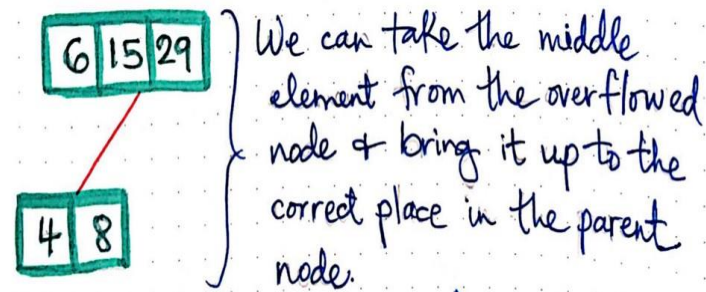 6 15 29
We can take the middle
element from the overflowed
node & bring it up to the
correct place in the parent
node.
4 8